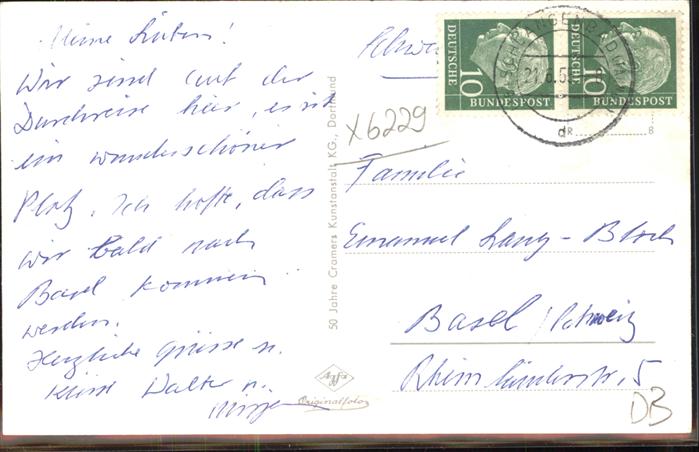 Meine Lieben!
Wir sind auf der
Durchreise hier, es ist
ein wunderschöner
Platz. Ich hoffe, dass
wir bald nach
Basel kommen
werden.
Herzliche Grüsse u.
Küsse Walter u.
50 Jahre Cramers Kunstanstalt KG., Dortmund
Agfa
Originalfoto
X6229
10
DEUTSCHE
BUNDESPOST
10
DEUTSCHE
BUNDESPOST
SCHLANGENBAD
Familie
Emanuel Lang-Bloch
Basel / Schweiz
5
DB